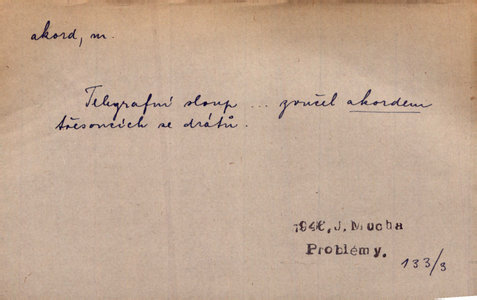 akord, m.
Telegrafní sloup ... zvučel akordem
třesoucích se drátů.
1946, J. Mucha
Problémy.
133/3